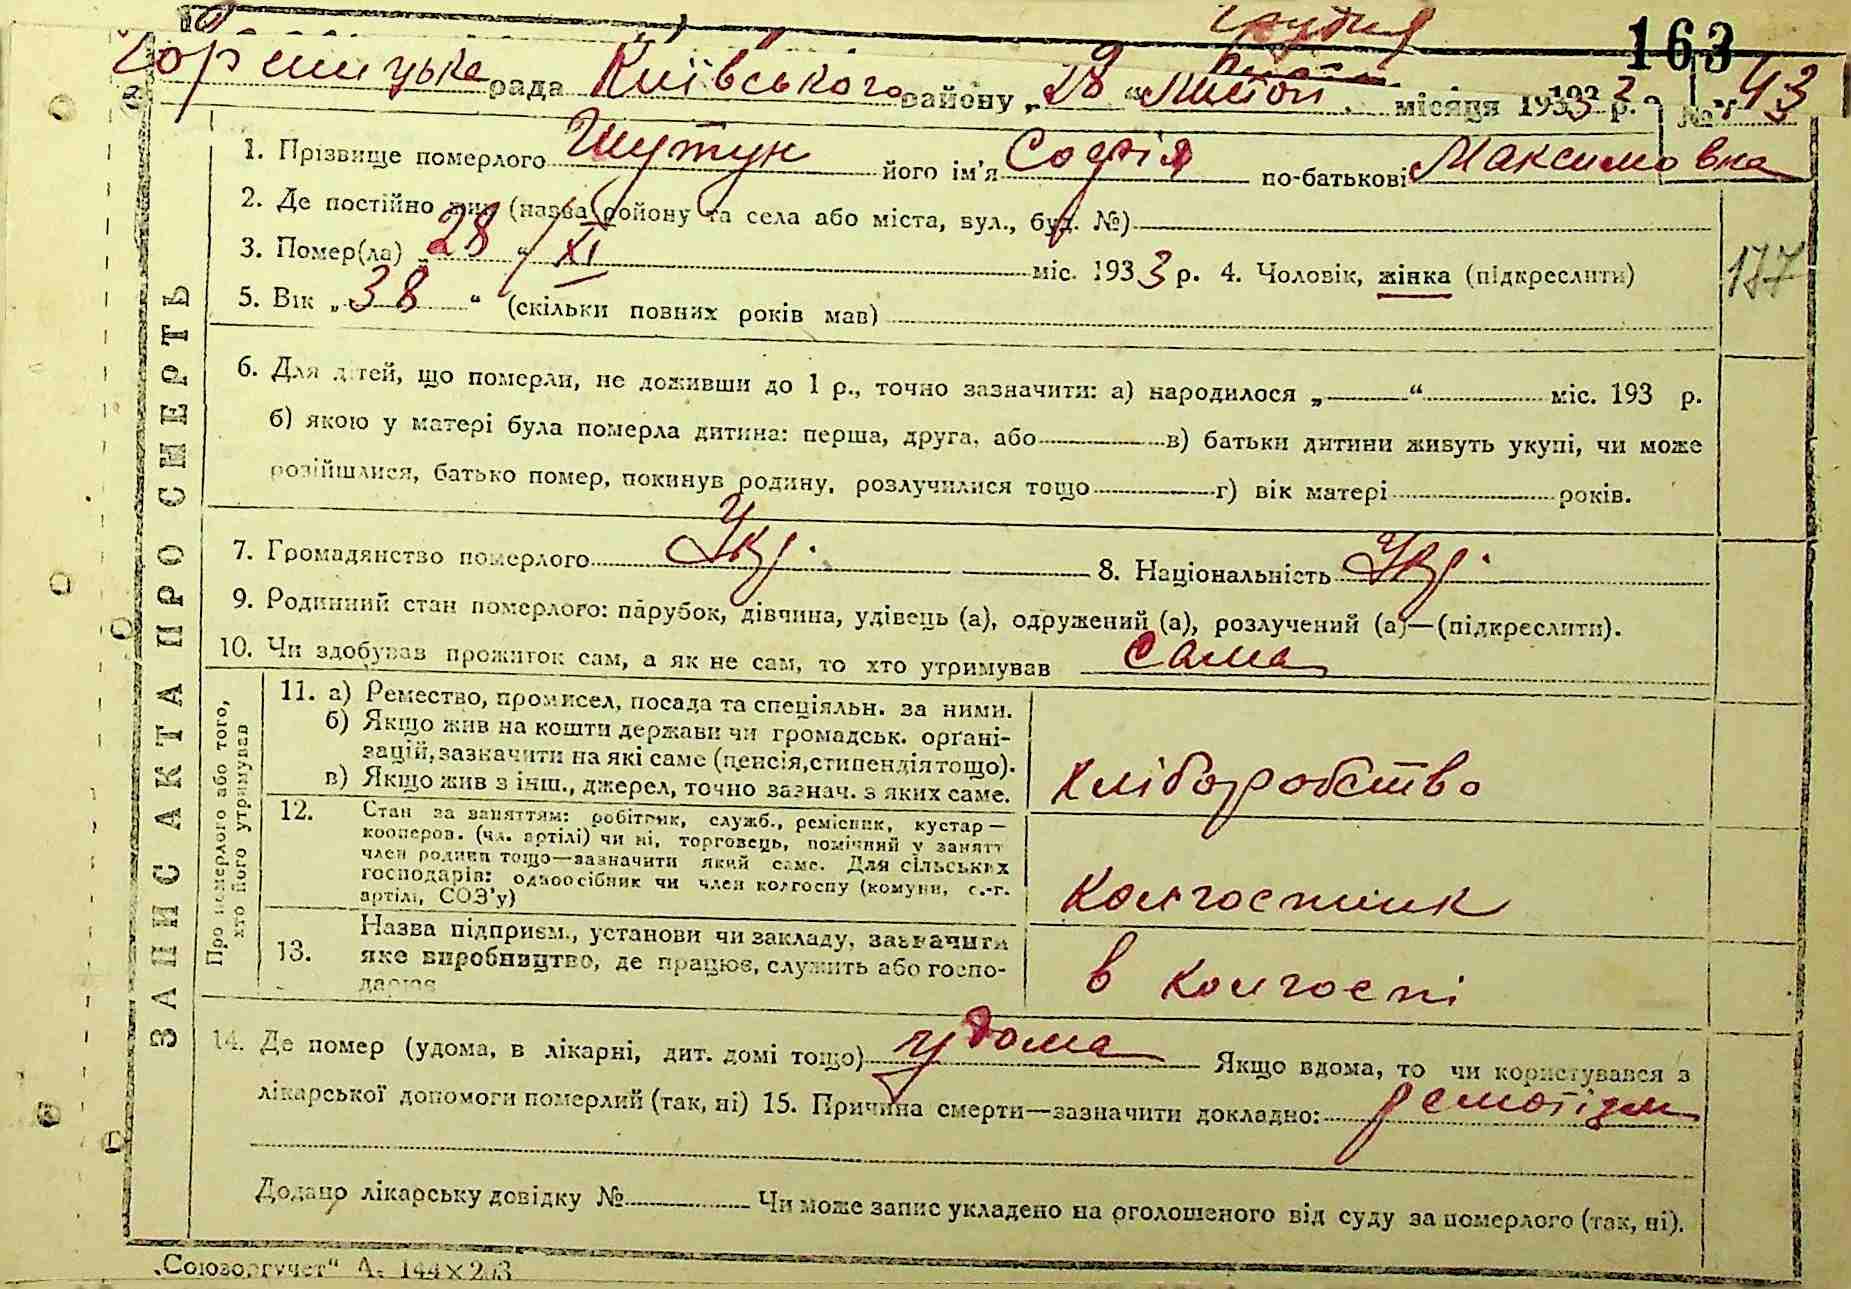 163
Гореницька рада Київського району „28“ Листоп. місяця 1933 р. № 43
1. Прізвище померлого Шутун його ім'я Софія по-батькові Максимовна
2. Де постійно жив (назва району та села або міста, вул., буд. №)
3. Помер(ла) „28“ XI міс. 1933 р. 4. Чоловік, жінка (підкреслити)
177
5. Вік „38“ (скільки повних років мав)
6. Для дітей, що померли, не доживши до 1 р., точно зазначити: а) народилося „ “ міс. 193 р.
б) якою у матері була померла дитина: перша, друга, або в) батьки дитини живуть укупі, чи може
розійшлися, батько помер, покинув родину, розлучилися тощо г) вік матері років.
7. Громадянство померлого Укр. 8. Національність Укр.
9. Родинний стан померлого: парубок, дівчина, удівець (а), одружений (а), розлучений (а)—(підкреслити).
10. Чи здобував прожиток сам, а як не сам, то хто утримував сама
ЗАПИС АКТА ПРО СМЕРТЬ
Про померлого або того,
хто його утримував
11. а) Ремество, промисел, посада та спеціяльн. за ними.
б) Якщо жив на кошти держави чи громадськ. органі-
зацій, зазначити на які саме (пенсія, стипендія тощо).
в) Якщо жив з інш., джерел, точно зазнач. з яких саме.
хліборобство
12. Стан за заняттям: робітник, служб., ремісник, кустар—
кооперов. (чл. артілі) чи ні, торговець, помічний у занятт
член родини тощо—зазначити який саме. Для сільських
господарів: одноосібник чи член колгоспу (комуни, с.-г.
артілі, СОЗ'у)
колгоспник
13. Назва підприєм., установи чи закладу, зазначити
яке виробництво, де працює, служить або госпо-
дарює
в колгоспі
14. Де помер (удома, в лікарні, дит. домі тощо) удома Якщо вдома, то чи користувався з
лікарської допомоги померлий (так, ні) 15. Причина смерти—зазначити докладно:
Додано лікарську довідку № Чи може запис укладено на оголошеного від суду за померлого (так, ні).
„Союзоргучет“ А. 144×203